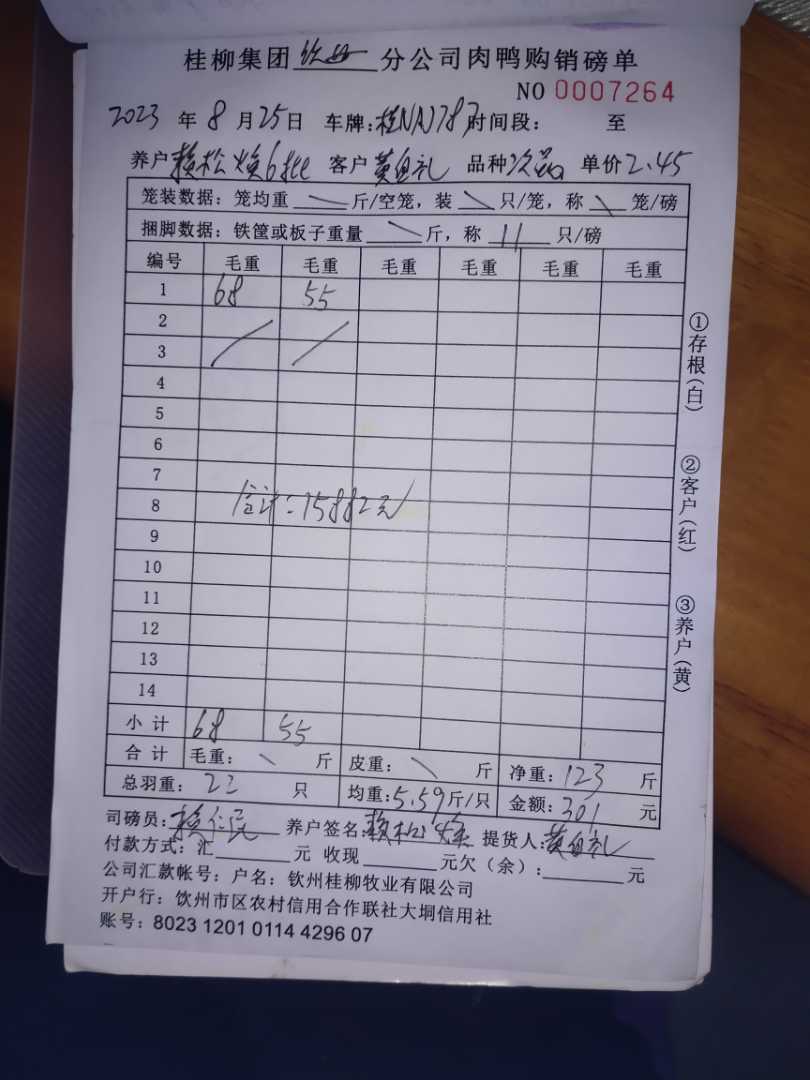 桂柳集团 分公司肉鸭购销磅单
NO 0007264
2023 年 8 月 25 日 车牌: 时间段: 至
养户 赖松焕6批 客户 黄自礼 品种 次品 单价 2.45
笼装数据: 笼均重 斤/空笼, 装 只/笼, 称 笼/磅
捆脚数据: 铁筐或板子重量 斤, 称 11 只/磅
编号 毛重 毛重 毛重 毛重 毛重 毛重
1 68 55
2
3
4
5
6
7
8 合计:15882元
9
10
11
12
13
14
小计 68 55
合计 毛重: 斤 皮重: 斤 净重: 123 斤
总羽重: 22 只 均重: 5.59 斤/只 金额: 301 元
司磅员: 养户签名: 赖松焕 提货人: 黄自礼
付款方式: 汇 元 收现 元欠(余): 元
公司汇款帐号: 户名: 钦州桂柳牧业有限公司
开户行: 钦州市区农村信用合作联社大垌信用社
账号: 8023 1201 0114 4296 07
①存根(白)
②客户(红)
③养户(黄)